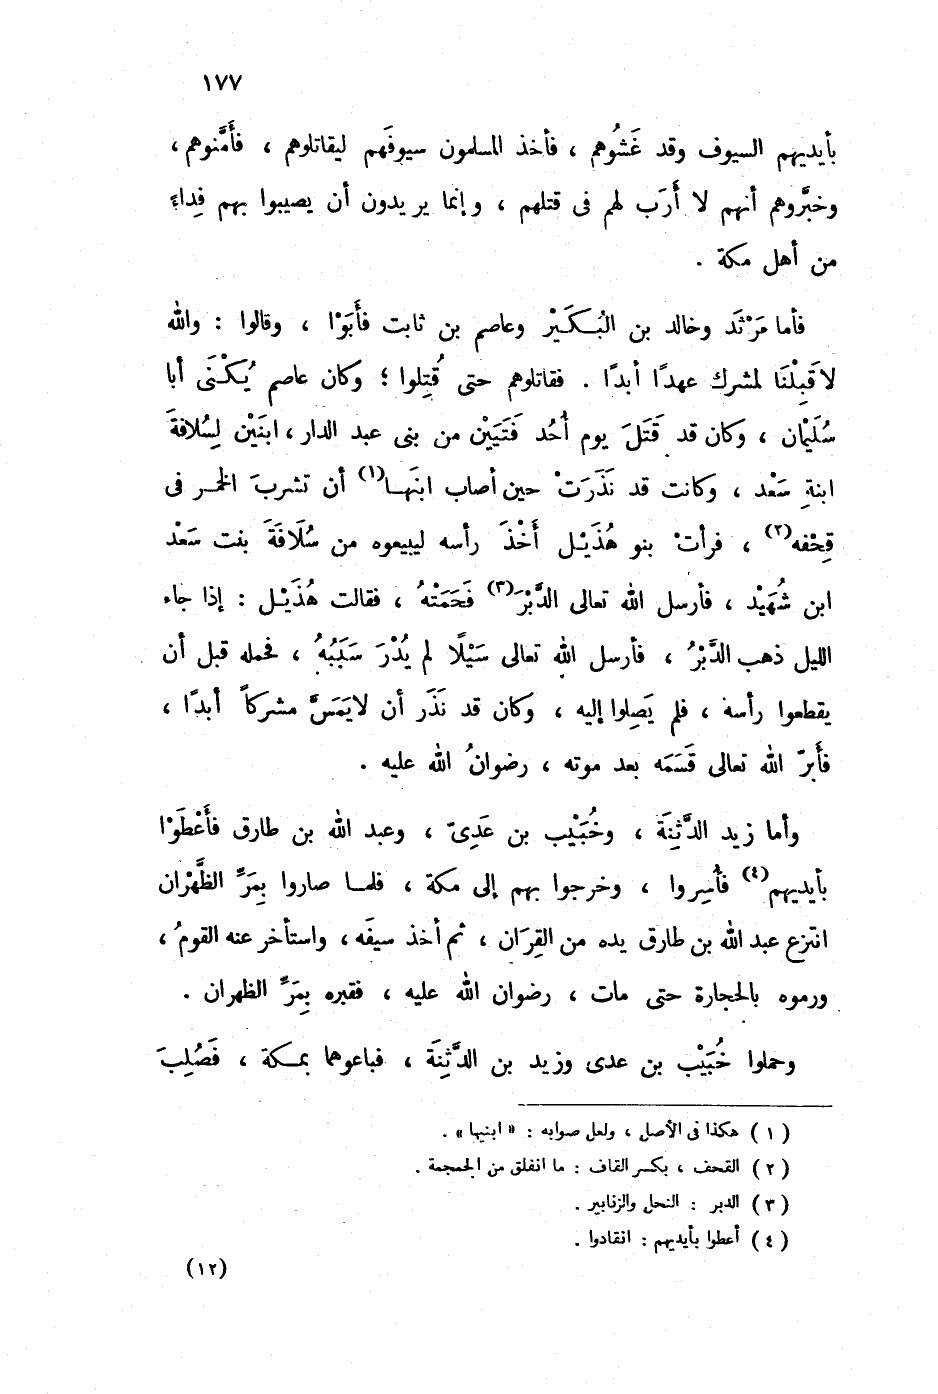 ١٧٧
بأيديهم السيوف وقد غَشُوُهم ، فأخذ المسلمون سيوفَهم ليقاتلوهم ، فأَمَّنوهم ،
وخبَّروهم أنهم لا أَرَب لهم فى قتلهم ، وإنما يريدون أن يصيبوا بهم فِداءً
من أهل مكة .
فأما مَرْثَد وخالد بن البُكَيْر وعاصم بن ثابت فأَبَوْا ، وقالوا : والله
لاقَبِلْنَا لمشرك عهدًا أبدًا . فقاتلوهم حتى قُتِلوا ؛ وكان عاصم يُكْنَى أبا
سُلَيْمان ، وكان قد قَتَلَ يوم أُحُد فَتَيَيْن من بنى عبد الدار ، ابنَيْن لِسُلافةَ
ابنةِ سَعْد ، وكانت قد نَذَرَتْ حين أصاب ابنَها(١) أن تشربَ الخمر فى
قِحْفه(٢) ، فرأتْ بنو هُذَيْل أَخْذَ رأسه ليبيعوه من سُلَافَةَ بنت سَعْد
ابن شُهَيْد ، فأرسل الله تعالى الدَّبْرَ(٣) فَحَمَتْهُ ، فقالت هُذَيْل : إذا جاء
الليل ذهب الدَّبْرُ ، فأرسل الله تعالى سَيْلًا لم يُدْرَ سَبَبُهُ ، فحمله قبل أن
يقطعوا رأسه ، فلم يَصِلوا إليه ، وكان قد نَذَر أن لايَمَسَّ مشركاً أبدًا ،
فأَبرّ الله تعالى قَسَمَه بعد موته ، رضوانُ الله عليه .
وأما زيد الدَّثِنَة ، وخُبَيْب بن عَدِىّ ، وعبد الله بن طارق فأَعْطَوْا
بأيديهم(٤) فأُسِروا ، وخرجوا بهم إلى مكة ، فلما صاروا بِمَرِّ الظَّهْران
انتزع عبد الله بن طارق يده من القِرَان ، ثم أخذ سيفَه ، واستأخر عنه القومُ ،
ورموه بالحجارة حتى مات ، رضوان الله عليه ، فقبره بِمَرِّ الظهران .
وحملوا خُبَيْب بن عدى وزيد بن الدَّثِنَة ، فباعوهما بمكة ، فَصُلِبَ
( ١ ) هكذا فى الأصل ، ولعل صوابه : « ابنيها » .
( ٢ ) القحف ، بكسر القاف : ما انفلق من الجمجمة .
( ٣ ) الدبر : النحل والزنابير .
( ٤ ) أعطوا بأيديهم : انقادوا .
(١٢)